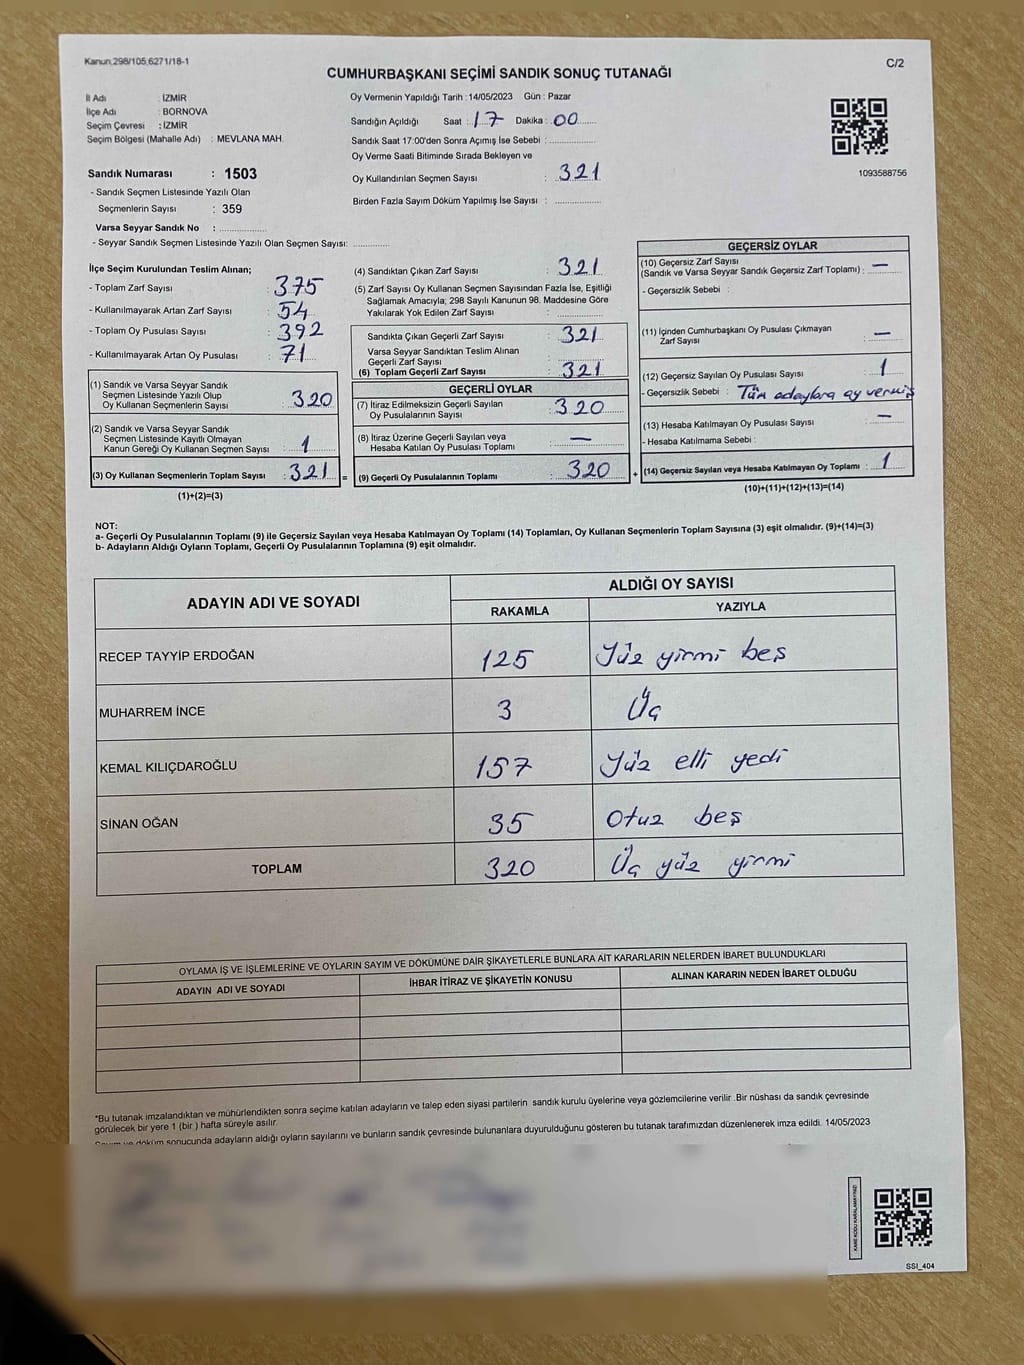 Kanun,298/105,6271/18-1
C/2
CUMHURBAŞKANI SEÇİMİ SANDIK SONUÇ TUTANAĞI
İl Adı : İZMİR
İlçe Adı : BORNOVA
Seçim Çevresi : İZMİR
Seçim Bölgesi (Mahalle Adı) : MEVLANA MAH.
Sandık Numarası : 1503
- Sandık Seçmen Listesinde Yazılı Olan
Seçmenlerin Sayısı : 359
Varsa Seyyar Sandık No : ....................
- Seyyar Sandık Seçmen Listesinde Yazılı Olan Seçmen Sayısı: .............
Oy Vermenin Yapıldığı Tarih : 14/05/2023 Gün : Pazar
Sandığın Açıldığı Saat : 17 Dakika : 00
Sandık Saat 17:00'den Sonra Açımış İse Sebebi : ................
Oy Verme Saati Bitiminde Sırada Bekleyen ve
Oy Kullandırılan Seçmen Sayısı : 321
Birden Fazla Sayım Döküm Yapılmış İse Sayısı : ................
1093588756
İlçe Seçim Kurulundan Teslim Alınan;
- Toplam Zarf Sayısı : 375
- Kullanılmayarak Artan Zarf Sayısı : 54
- Toplam Oy Pusulası Sayısı : 392
- Kullanılmayarak Artan Oy Pusulası : 71
(1) Sandık ve Varsa Seyyar Sandık
Seçmen Listesinde Yazılı Olup
Oy Kullanan Seçmenlerin Sayısı : 320
(2) Sandık ve Varsa Seyyar Sandık
Seçmen Listesinde Kayıtlı Olmayan
Kanun Gereği Oy Kullanan Seçmen Sayısı : 1
(3) Oy Kullanan Seçmenlerin Toplam Sayısı : 321 =
(1)+(2)=(3)
(4) Sandıktan Çıkan Zarf Sayısı : 321
(5) Zarf Sayısı Oy Kullanan Seçmen Sayısından Fazla İse, Eşitliği
Sağlamak Amacıyla; 298 Sayılı Kanunun 98. Maddesine Göre
Yakılarak Yok Edilen Zarf Sayısı : ................
Sandıkta Çıkan Geçerli Zarf Sayısı : 321
Varsa Seyyar Sandıktan Teslim Alınan
Geçerli Zarf Sayısı : ................
(6) Toplam Geçerli Zarf Sayısı : 321
GEÇERLİ OYLAR
(7) İtiraz Edilmeksizin Geçerli Sayılan
Oy Pusulalarının Sayısı : 320
(8) İtiraz Üzerine Geçerli Sayılan veya
Hesaba Katılan Oy Pusulası Toplamı : —
(9) Geçerli Oy Pusulalarının Toplamı : 320 +
GEÇERSİZ OYLAR
(10) Geçersiz Zarf Sayısı
(Sandık ve Varsa Seyyar Sandık Geçersiz Zarf Toplamı) : —
- Geçersizlik Sebebi :
(11) İçinden Cumhurbaşkanı Oy Pusulası Çıkmayan
Zarf Sayısı : —
(12) Geçersiz Sayılan Oy Pusulası Sayısı : 1
- Geçersizlik Sebebi : Tüm adaylara oy vermiş
(13) Hesaba Katılmayan Oy Pusulası Sayısı : —
- Hesaba Katılmama Sebebi :
(14) Geçersiz Sayılan veya Hesaba Katılmayan Oy Toplamı : 1
(10)+(11)+(12)+(13)=(14)
NOT:
a- Geçerli Oy Pusulalarının Toplamı (9) ile Geçersiz Sayılan veya Hesaba Katılmayan Oy Toplamı (14) Toplamları, Oy Kullanan Seçmenlerin Toplam Sayısına (3) eşit olmalıdır. (9)+(14)=(3)
b- Adayların Aldığı Oyların Toplamı, Geçerli Oy Pusulalarının Toplamına (9) eşit olmalıdır.
ADAYIN ADI VE SOYADI
ALDIĞI OY SAYISI
RAKAMLA YAZIYLA
RECEP TAYYİP ERDOĞAN 125 Yüz yirmi beş
MUHARREM İNCE 3 Üç
KEMAL KILIÇDAROĞLU 157 Yüz elli yedi
SİNAN OĞAN 35 Otuz beş
TOPLAM 320 Üç yüz yirmi
OYLAMA İŞ VE İŞLEMLERİNE VE OYLARIN SAYIM VE DÖKÜMÜNE DAİR ŞİKAYETLERLE BUNLARA AİT KARARLARIN NELERDEN İBARET BULUNDUKLARI
ADAYIN ADI VE SOYADI İHBAR İTİRAZ VE ŞİKAYETİN KONUSU ALINAN KARARIN NEDEN İBARET OLDUĞU
*Bu tutanak imzalandıktan ve mühürlendikten sonra seçime katılan adayların ve talep eden siyasi partilerin sandık kurulu üyelerine veya gözlemcilerine verilir .Bir nüshası da sandık çevresinde
görülecek bir yere 1 (bir ) hafta süreyle asılır.
Sayım ve döküm sonucunda adayların aldığı oyların sayılarını ve bunların sandık çevresinde bulunanlara duyurulduğunu gösteren bu tutanak tarafımızdan düzenlenerek imza edildi. 14/05/2023
KARE KODU KARALAMAYINIZ!
SSI_404